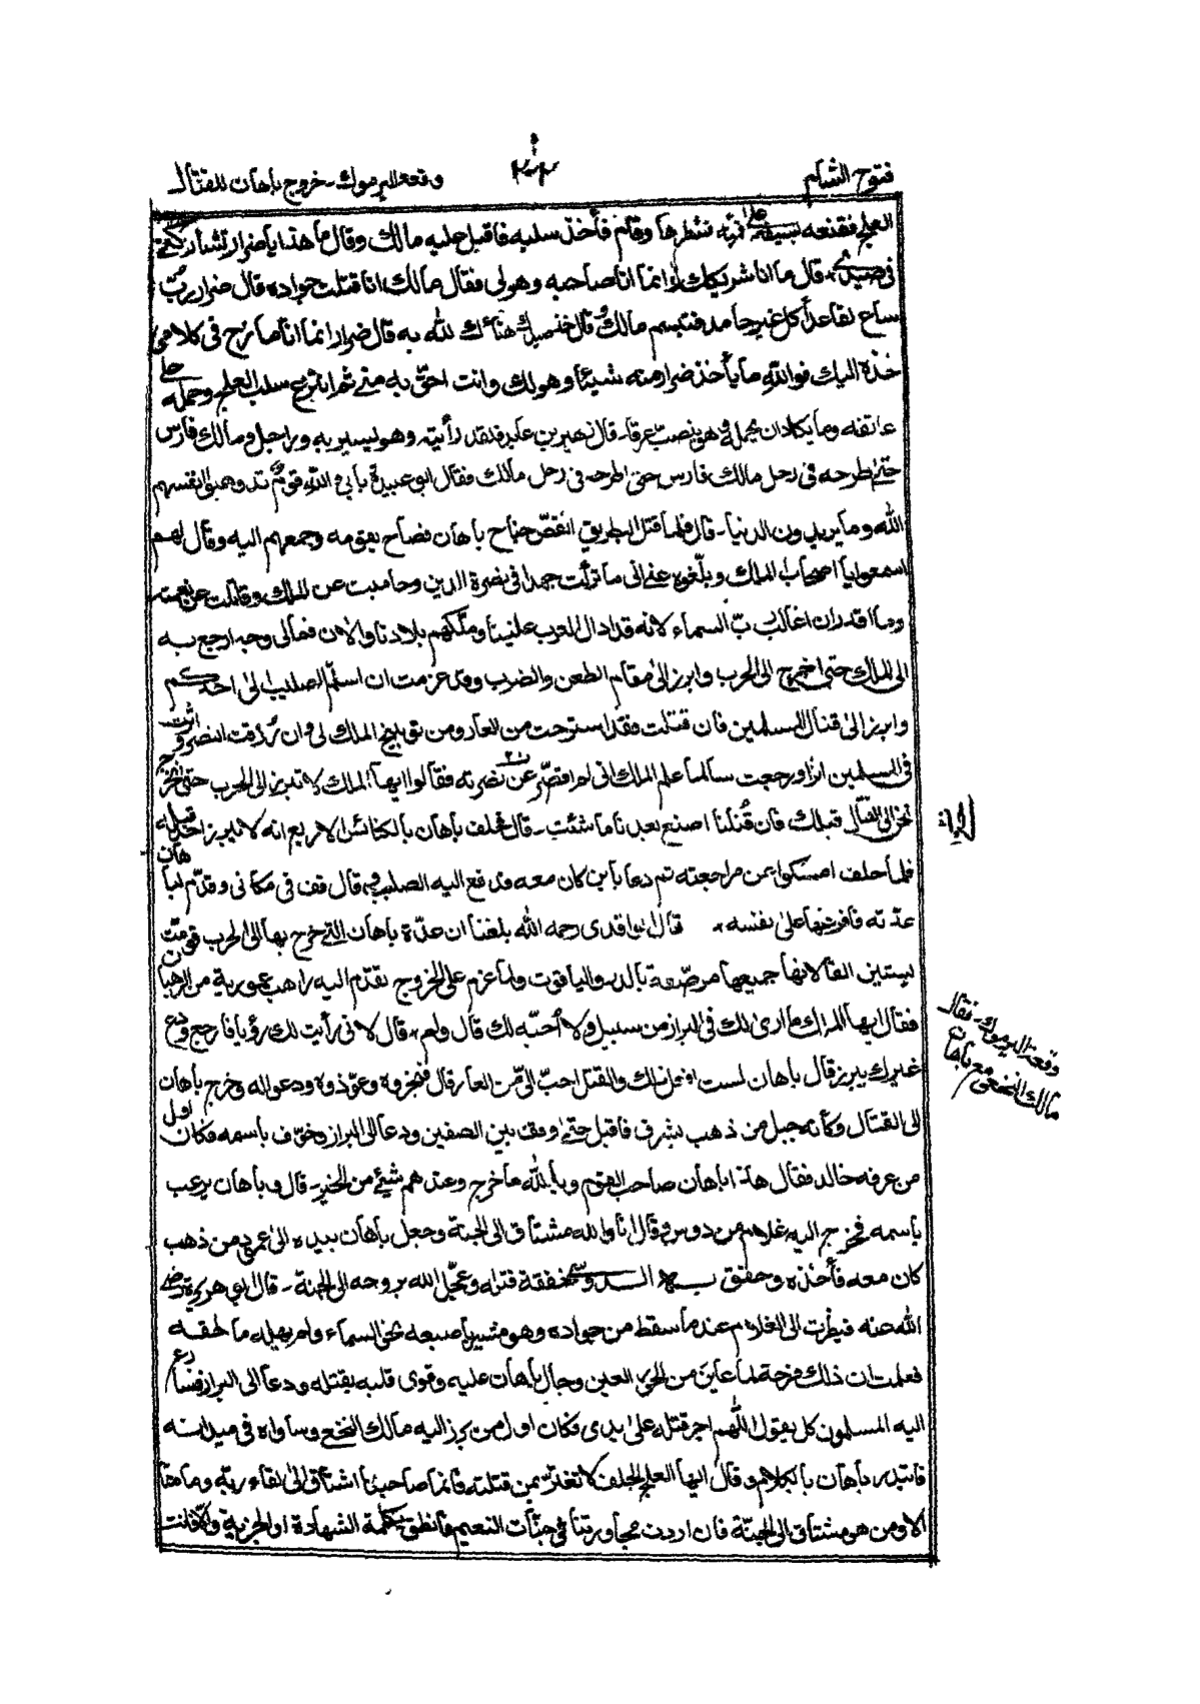 فتوح الشام
٢٠٢
وقعة اليرموك - خروج باهان للقتال
العلج فقنعه بسيفه على قمته فشطرها وقام فأخذ سلبه فاقبل عليه مالك وقال ما هذا يا ضرار تشاركني
في صيدي قال ما انا شريكك وانما انا صاحبه وهو لي فقال مالك انا قتلت جواده قال ضرار رب
ساع لقاعد آكل غير حامد فتبسم مالك وقال خذ صيدك هنأك الله به قال ضرار انما انا مازح في كلامي
خذه اليك فوالله ما يأخذ ضرار منه شيئا وهو لك وانت احق به مني ثم انتزع سلب العلج وحمله على
عاتقه وما يكاد ان يحمله وهو يتصبب عرقا قال زهير بن عابد فلقد رأيته وهو يسير به وراجل ومالك فارس
حتى طرحه في رحل مالك فقال ابو عبيدة بأبي والله قوم قد وهبوا انفسهم
الله وما يريدون الدنيا - قال فلما قتل البطريق انقص جناح باهان فصاح بقومه وجمعهم اليه وقال لهم
اسمعوا يا اصحاب الملك وبلغوه عني اني ما تركت جهدا في نصرة الدين وحاميت عن الملك وقاتلت عن نعمته
وما اقدر ان اغالب رب السماء لانه قد ادال العرب علينا وملكهم بلادنا والان فما لي وجه ارجع به
الى الملك حتى اخرج الى الحرب وابرز الى مقام الطعن والضرب وقد عزمت ان اسلم الصليب الى احدكم
وابرز الى قتال المسلمين فان قتلت فقد استرحت من العار ومن توبيخ الملك لي وان رزقت النصر واثرت
في المسلمين اثرا ورجعت سالما علم الملك اني لم اقصر عن نصرته فقالوا ايها الملك لا تبرز الى الحرب حتى نخرج
نحن الى القتال قبلك فان قتلنا اصنع بعدنا ما شئت - قال فحلف باهان بالكنائس الاربع انه لا يبرز احد قبله
فلما حلف امسكوا عن مراجعته ثم دعا بابن كان معه ودفع اليه الصليب وقال قف في مكاني وقدم لباهان
عدته فافرغها على نفسه قال الواقدي رحمه الله بلغنا ان عدة باهان التي خرج بها الى الحرب قومت
بستين الفا لانها جميعها مرصعة بالدر والياقوت ولما عزم على الخروج تقدم اليه راهب عمورية من الرهبان
فقال ايها الملك ما ارى لك في البراز من سبيل ولا احبه لك قال ولم قال لاني رأيت لك رؤيا فارجع ودع
غيرك يبرز قال باهان لست افعل ذلك والقتل احب الي من العار قال فبخروه وعوذوه ودعوا له وخرج باهان
الى القتال وكأنه جبل من ذهب يشرف فاقبل حتى وقف بين الصفين ودعا الى البراز وخوف باسمه فكان اول
من عرفه خالد فقال هذا باهان صاحب القوم وبالله ما خرج وعندهم شيئ من الخير - قال وباهان يرعب
باسمه فخرج اليه غلام من دوس وقال انا والله مشتاق الى الجنة وحمل باهان بيده الى عمود من ذهب
كان معه فأخذه وخفق به الدوسي خفقة قتله وعجل الله بروحه الى الجنة - قال ابو هريرة رضي
الله عنه فنظرت الى الغلام عندما سقط من جواده وهو مشير باصبعه نحو السماء ولم يهله ما لحقه
فعلمت ان ذلك فرحة لما عاين من الحور العين وجال باهان عليه وقوي قلبه بقتله ودعا الى البراز فسارع
اليه المسلمون كل يقول اللهم اجر قتله على يدي فكان اول من برز اليه مالك النخعي وساواه في ميدانه
فابتدر باهان بالكلام وقال ايها العلج الجلف لا تغتر بمن قتلته فانما صاحبنا اشتاق الى لقاء ربه وما منا
الا ومن هو مشتاق الى الجنة فان اردت مجاورتنا في جنات النعيم فانطق بكلمة الشهادة او الجزية والا فانت
وقعة اليرموك - فقال
مالك النخعي مع باهان